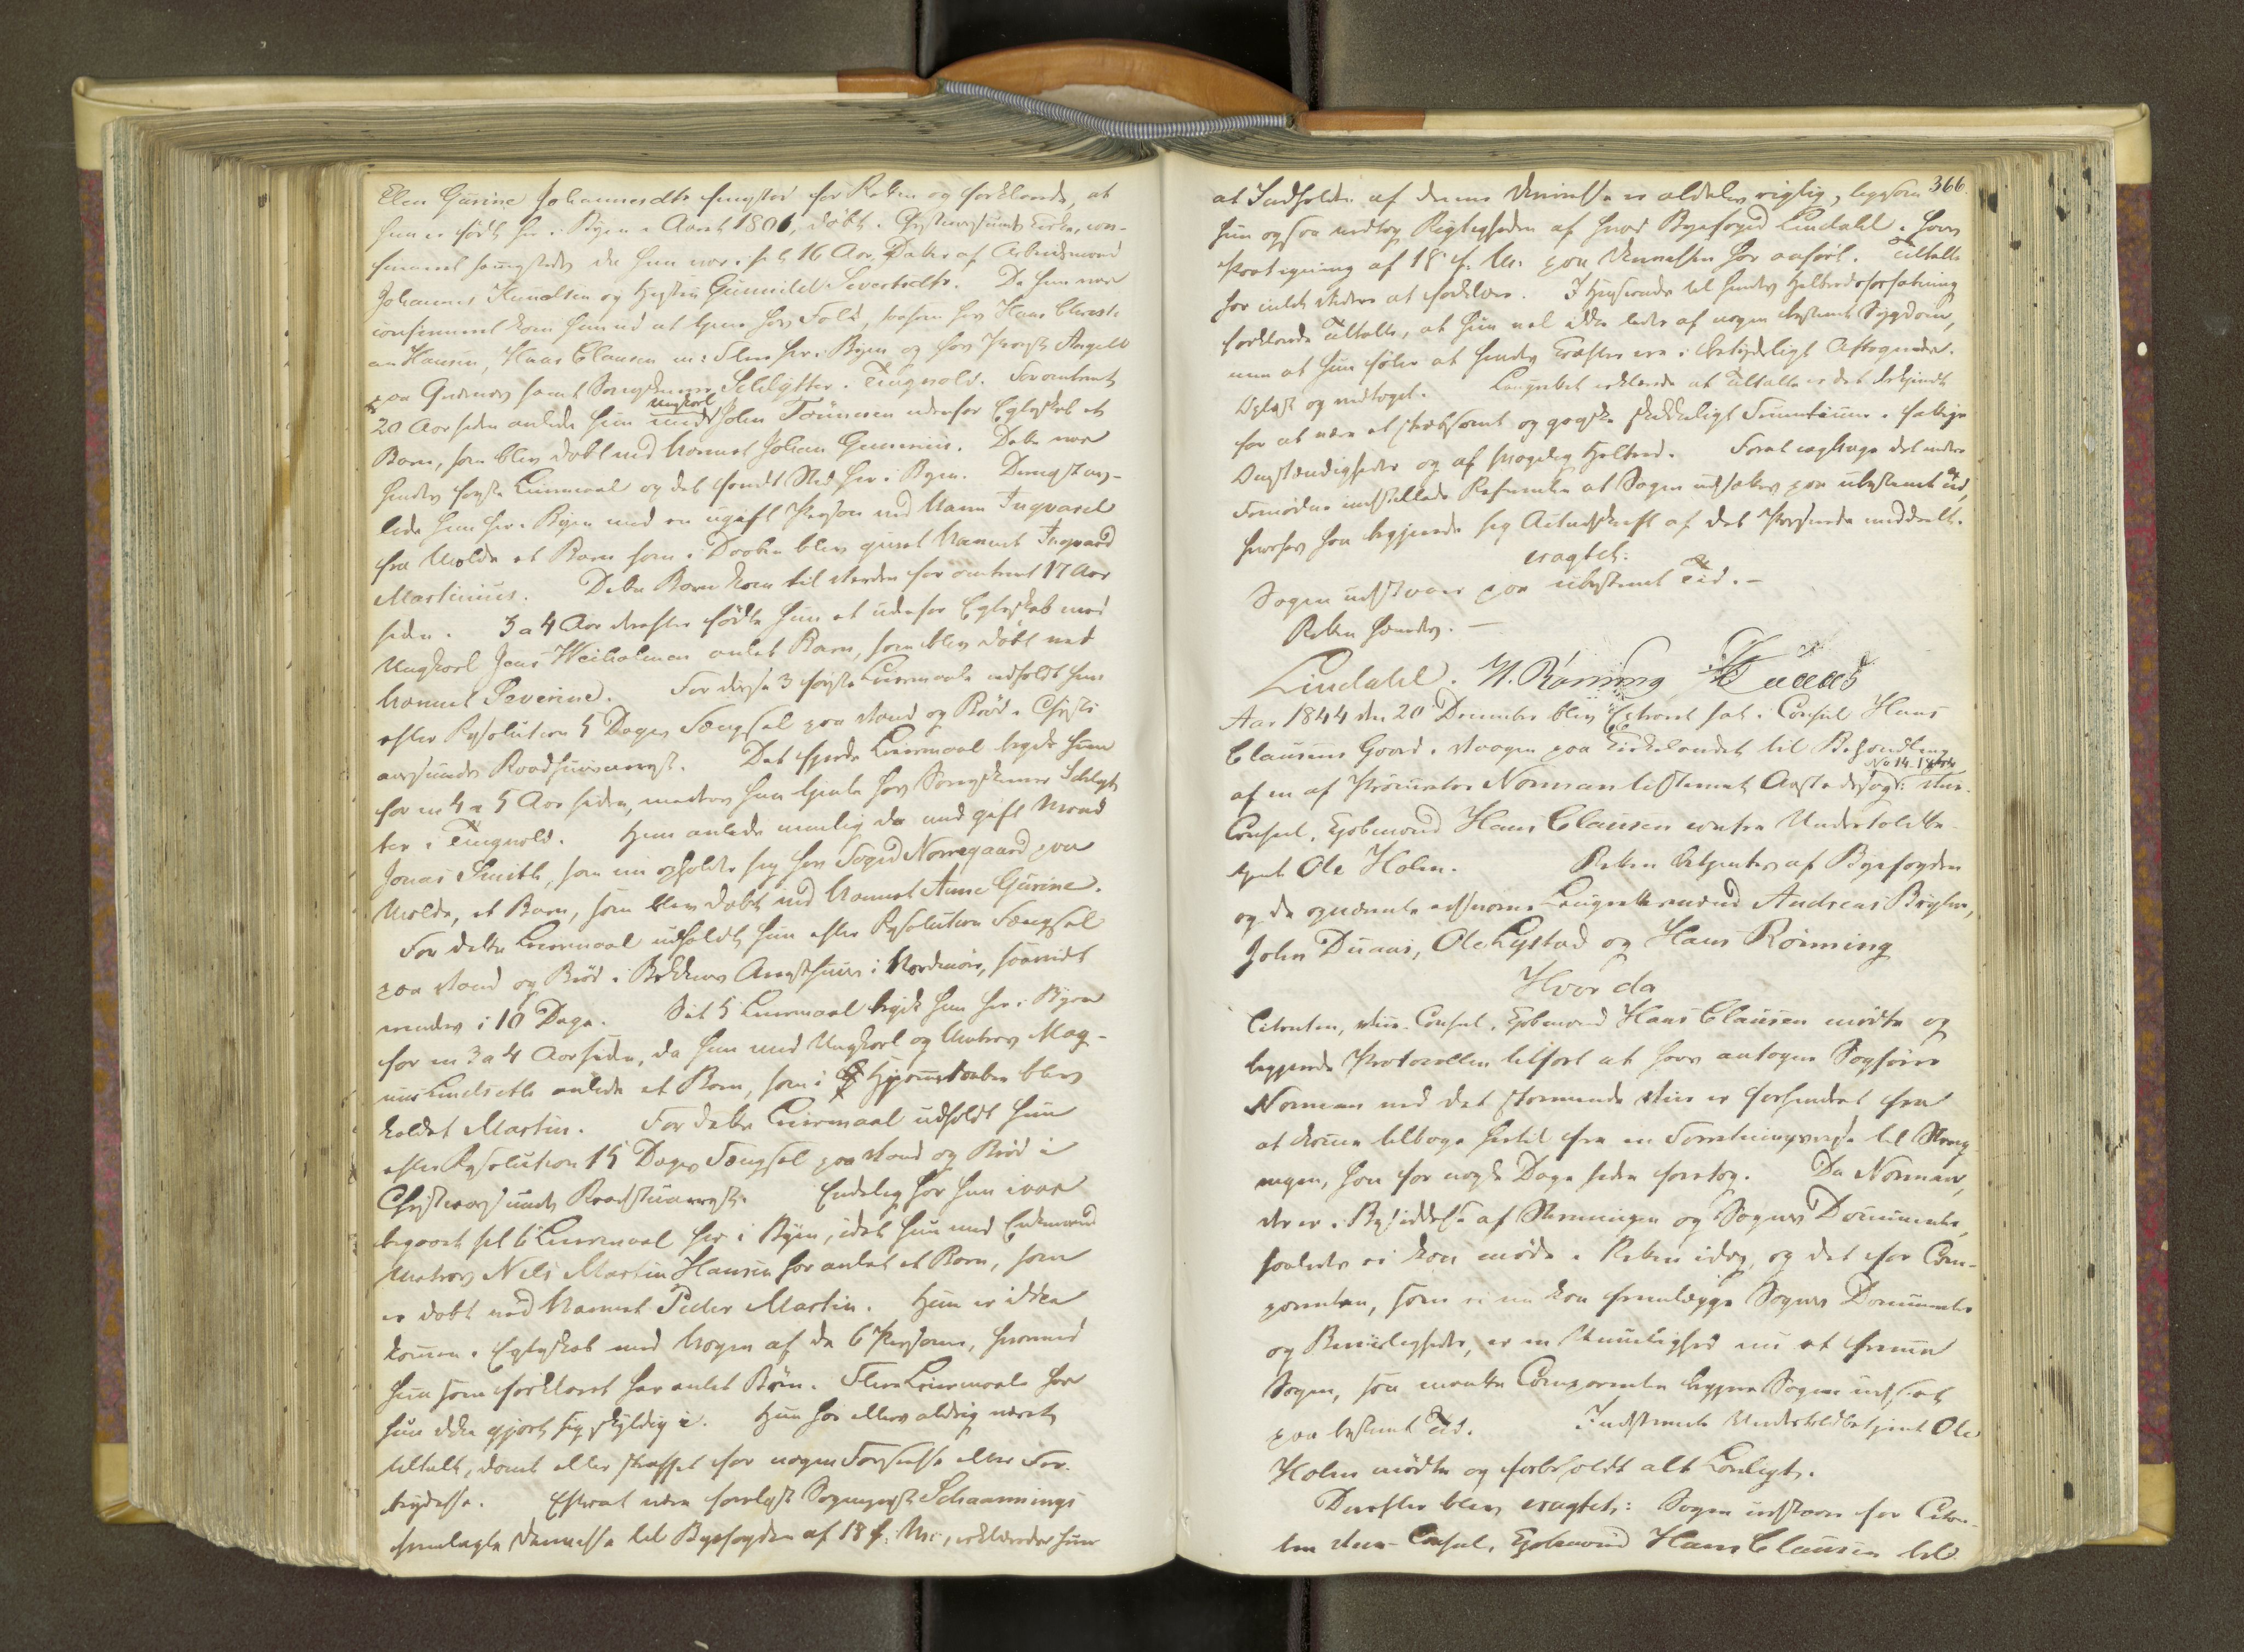 Elen Gurine Johannesdtr fremstod for Retten og forklarede, at
hun er født her i Byen i Aaret 1801, døbt i Christiansunds Kirke, con-
firmeret sammesteds da hun var i sit 16 Aar, Datter af Arbeidsmand
Johannes Knudsen og Hustru Gunnild Sivertsdtr. Da hun var
confirmeret kom hun ud at tjene hos Folk, saasom hos Hans Christi-
an Hansen, Hans Clausen m: Flere her i Byen og hos Provst Angell
paa samt Sorenskriver Schlytter i Tingvold. For omtrent
20 Aar siden avlede hun med Ungkarl John Tønnesen udenfor Egteskab et
Barn, som blev døbt med Navnet Johan Gunnius. Dette var
hendes første Leiermaal og det fandt Sted her i Byen. Dernæst av-
lede hun her i Byen med en ugift Person ved Navn Ingvard
fra Molde et Barn som i Daaben blev givet Navnet Ingvard
Martinius. Dette Barn kom til Verden for omtrent 17 Aar
siden. 3 a 4 Aar derefter fødte hun et udenfor Egteskab med
Ungkarl Jens Weiholmen avlet Barn, som blev døbt med
Navnet Severine. For disse 3 første Leiermaale udholdt hun
efter Resolution 5 Dages Fængsel paa Vand og Brød i Christi-
ansunds Raadhuusarrest. Det fjerde Leiermaal begik hun
for en 4 a 5 Aar siden, medens hun tjente hos Sorenskriver Schlyt-
ter i Tingvold. Hun avlede nemlig da med gift Mand
Jonas Smith, som nu opholder sig hos Foged Norregaard paa
Molde, et Barn, som blev døbt med Navnet Anne Gurine.
For dette Leiermaal udholdt hun efter Resolution Fængsel
paa Vand og Brød i Arresthuus i Nordmøre, saavidt
mindes i 10 Dage. Sit 5 Leiermaal begik hun her i Byen
for en 3 a 4 Aar siden, da hun med Ungkarl og Matros Mag-
nus Lindseth avlede et Barn, som i Hjemmedaaben blev
kaldet Martin. For dette Leiermaal udholdt hun
efter Resolution 15 Dages Fængsel paa Vand og Brød i
Christiansunds Raadstuearrest. Endelig har hun iaar
begaaet sit 6 Leiermaal her i Byen, idet hun med Enkemand
Matros Nils Martin Hansen har avlet et Barn, som
er døbt med Navnet Peder Martin. Hun er ikke
kommen i Egteskab med Nogen af de 6 Personer, hvormed
hun som forklaret har avlet Børn. Flere Leiermaale har
hun ikke gjort sig skyldig i. Hun har ellers aldrig været
tiltalt, dømt eller straffet for nogen Forseelse eller For-
brydelse. Efterat være forelæst Sogneprest Schaannings
fremlagte Skrivelse til Byefogden af 18 f. M., erklærede hun
366.
at Indholdet af denne Skrivelse er aldeles rigtig, ligesom
hun ogsaa vedtog Rigtigheden af hvad Byefoged Lindahl i hans
Paategning af 18 f. M. paa Skrivelsen har anført. Tiltalte
har intet videre at forklare. I Henseende til hendes Helbredsforfatning
forklarede Tiltalte, at hun vel ikke lider af nogen bestemt Sygdom,
men at hun føler at hendes Kræfter ere i betydeligt Aftagende.
Oplæst og vedtaget. Laugrettet erklærede at Tiltalte er det bekjendt
for at være et stræbsomt og ganske skikkeligt Fruentimmer i fattige
Omstændigheder og af svagelig Helbred. Forat iagttage det videre
Fornødne indstillede Referenten at Sagen udsættes paa ubestemt Tid,
hvorhos han begjærede sig Actudskrift af det Passerede meddeelt.
eragtet:
Sagen udstaaer paa ubestemt Tid. –
Retten hævet. –
Lindahl. H. Rönning Duaas
Aar 1844 den 20 December blev Extraret sat i Consul Hans
Clausens Gaard i Vaagen paa Kirkelandet til Behandling
No 14. 1844
af en af Procurator Norman bestemt Vice-
Consul, Kjøbmand Hans Clausen contra Undertoldbe-
tjent Ole Holm. Retten betjentes af Byefogden
og de opnævnte edsvorne Laugrettesmænd Andreas Brysen,
John Duaas, Ole Lystad og Hans Rönning
Hvorda
Citanten, Vice-Consul, Kjøbmand Hans Clausen mødte og
begjærede Protocollen tilført at hans antagne Sagfører
Norman ved det stormende Veir er forhindret fra
at komme tilbage hertil fra en Forretningsreise til
som han for nogle Dage siden foretog. Da Norman,
der er i Besiddelse af Stevningen og Sagens Documenter,
saaledes ei kan møde i Retten idag, og det for Com-
parenten, som ei nu kan fremlægge Sagens Documenter
og Beviisligheder, er en Umulighed nu at fremme
Sagen, saa maatte Comparenten begjære Sagen udsat
paa bestemt Tid. Indstevnte Undertoldbetjent Ole
Holm mødte og forbeholdt alt Lovligt.
Derefter blev eragtet: Sagen udstaaer for Citan-
ten Vice-Consul, Kjøbmand Hans Clausen til